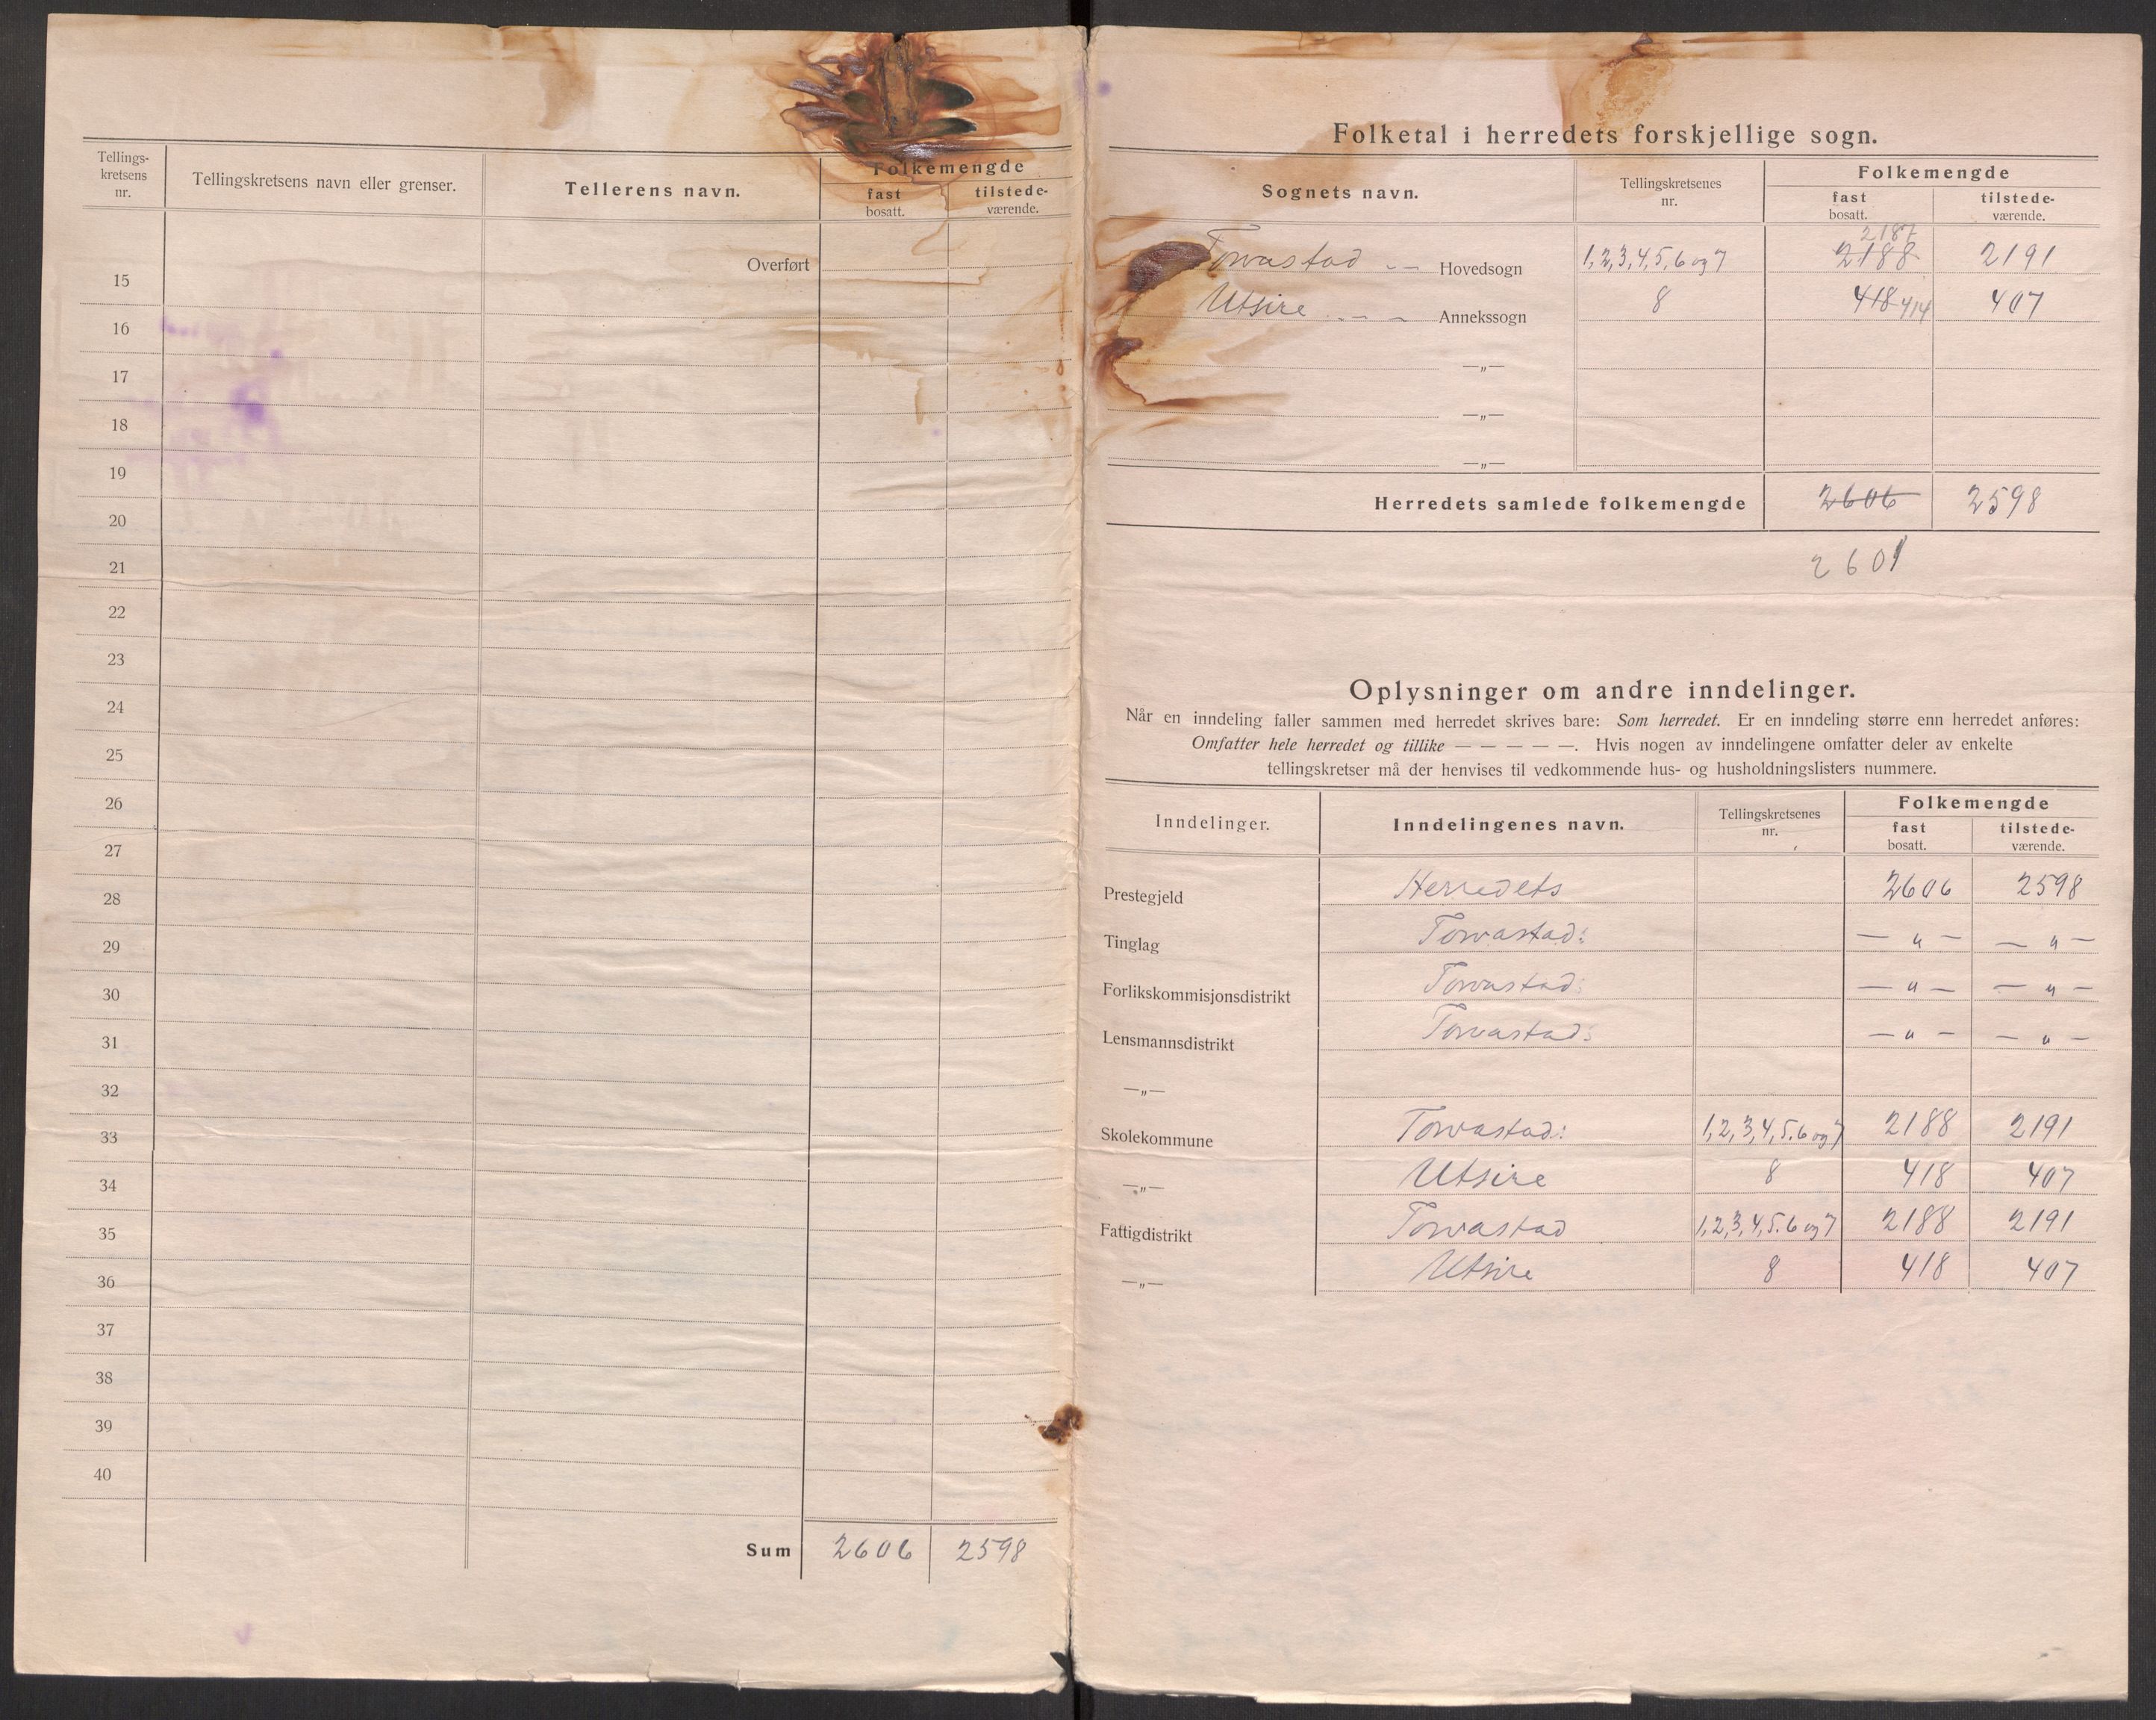 Tellings-
kretsens
nr.
Tellingskretsens navn eller grenser.
Tellerens navn.
Folkemengde
fast
bosatt.
tilstede-
værende.
Overført
15
16
17
18
19
20
21
22
23
24
25
26
27
28
29
30
31
32
33
34
35
36
37
38
39
40
Sum 2606 2598
Folketal i herredets forskjellige sogn.
Sognets navn.
Tellingskretsenes
nr.
Folkemengde
fast
bosatt.
tilstede-
værende.
2187
Torvastad -- Hovedsogn 1,2,3,4,5,6 og 7 2188 2191
Utsire - - - Annekssogn 8 418 414 407
—„—
—„—
—„—
Herredets samlede folkemengde 2606 2598
2601
Oplysninger om andre inndelinger.
Når en inndeling faller sammen med herredet skrives bare: Som herredet. Er en inndeling større enn herredet anføres:
Omfatter hele herredet og tillike — — — — —. Hvis nogen av inndelingene omfatter deler av enkelte
tellingskretser må der henvises til vedkommende hus- og husholdningslisters nummere.
Inndelinger.
Inndelingenes navn.
Tellingskretsenes
nr.
Folkemengde
fast
bosatt.
tilstede-
værende.
Prestegjeld Herredets 2606 2598
Tinglag Torvastad: — „ — — „ —
Forlikskommisjonsdistrikt Torvastad: — „ — — „ —
Lensmannsdistrikt Torvastad: — „ — — „ —
—„—
Skolekommune Torvastad: 1,2,3,4,5.6 og 7 2188 2191
—„— Utsire 8 418 407
Fattigdistrikt Torvastad 1,2,3,4,5.6 og 7 2188 2191
—„— Utsire 8 418 407